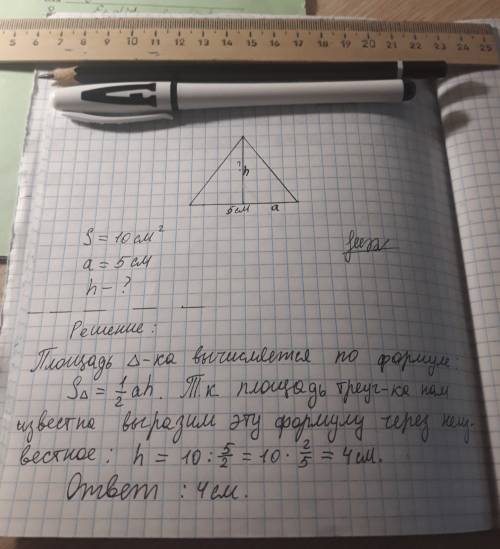 5 6 7 8 9 10 11 12 13 14 15 16 17 18 19 20 21 22 23 24 25
? h
5см a
S = 10 см²
a = 5 см
h - ?
Решение:
Площадь Δ-ка вычисляется по формуле:
SΔ = 1/2 ah. Т к площадь треуг-ка нам
известна выразим эту формулу через неиз-
вестное: h = 10 : 5/2 = 10 · 2/5 = 4 см.
Ответ: 4 см.